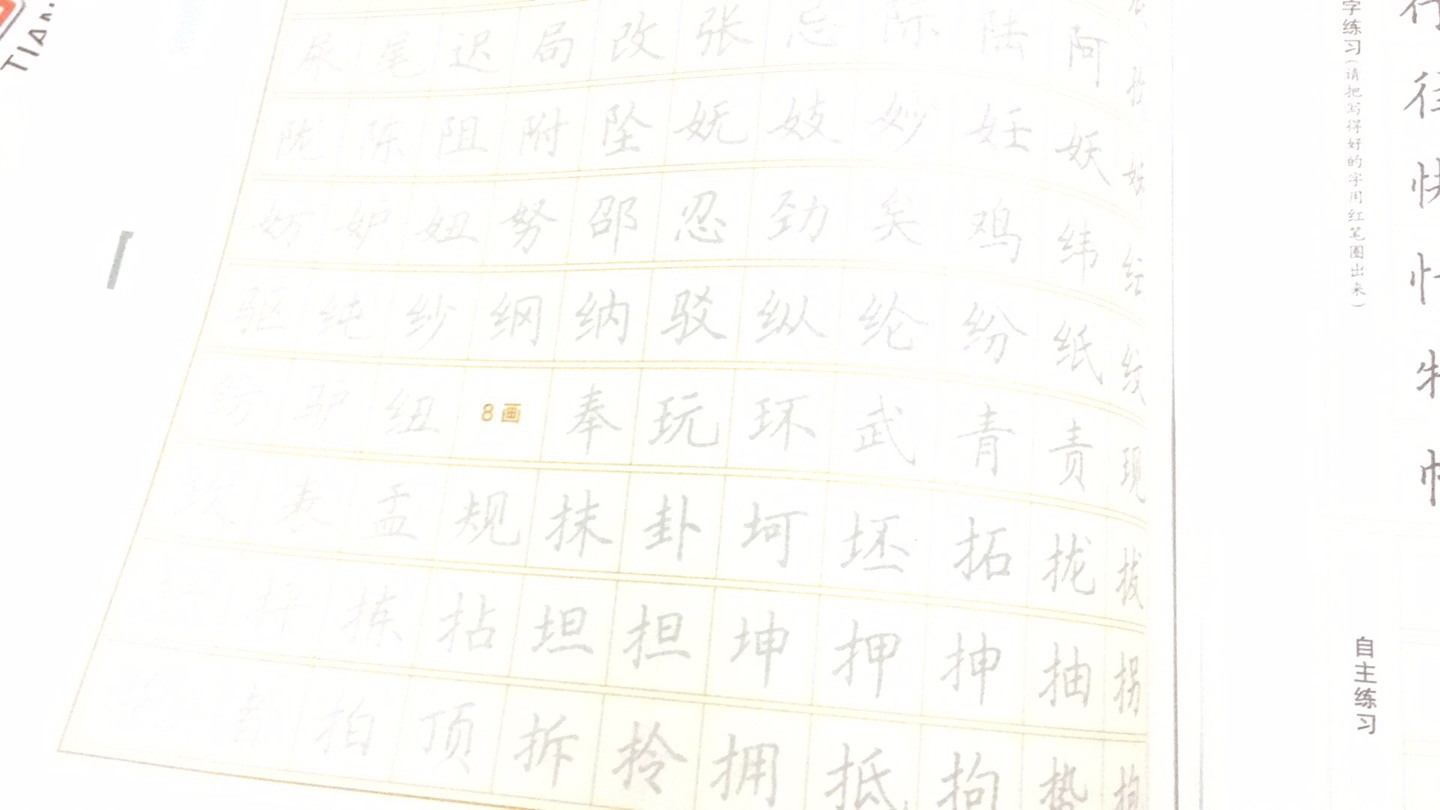 TIAN
尿尾迟局改张忌际陆阿
陇陈阻附坠妩妓妙妊妖
妨妒妞努邵忍劲矣鸡纬
驱纯纱纲纳驳纵纶纷纸
驴纽 8画 奉玩环武青责现
表盂规抹卦坷坯拓拢拔
拣拈坦担坤押抻抽拐
拍顶拆拎拥抵拘势
字练习(请把写得好的字用红笔圈出来)
自主练习
行
往
快